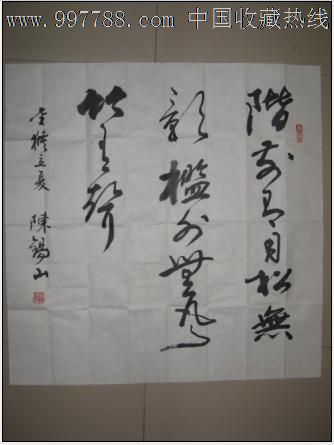 www.997788.com 中国收藏热线
階前有月松無
影檻外無風
竹有聲
金猴立夏 陳錫山